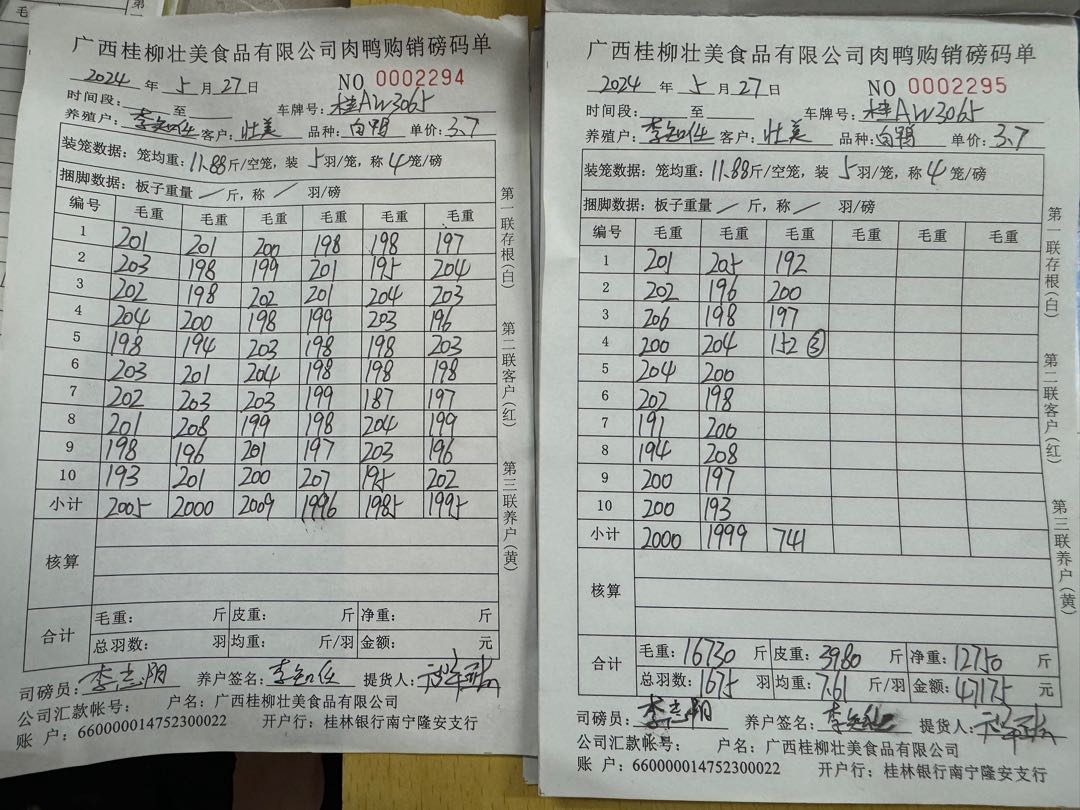 广西桂柳壮美食品有限公司肉鸭购销磅码单
2024 年 5 月 27 日 NO 0002294
时间段: 至 车牌号: 桂AW3065
养殖户: 李知任 客户: 壮美 品种: 白鸭 单价: 3.7
装笼数据: 笼均重: 11.88 斤/空笼, 装 5 羽/笼, 称 4 笼/磅
捆脚数据: 板子重量 / 斤, 称 / 羽/磅
编号 毛重 毛重 毛重 毛重 毛重 毛重
1 201 201 200 198 198 197
2 203 198 199 201 195 204
3 202 198 202 201 204 203
4 204 200 198 199 203 196
5 198 194 203 198 198 203
6 203 201 204 198 198 198
7 202 203 203 199 187 197
8 201 208 199 198 204 199
9 198 196 201 197 203 196
10 193 201 200 207 195 202
小计 2005 2000 2009 1996 1985 1995
核算
合计 毛重: 斤 皮重: 斤 净重: 斤
总羽数: 羽 均重: 斤/羽 金额: 元
司磅员: 李志阳 养户签名: 李知任 提货人:
公司汇款帐号: 户名: 广西桂柳壮美食品有限公司
账 户: 660000014752300022 开户行: 桂林银行南宁隆安支行
第一联存根(白)
第二联客户(红)
第三联养户(黄)
广西桂柳壮美食品有限公司肉鸭购销磅码单
2024 年 5 月 27 日 NO 0002295
时间段: 至 车牌号: 桂AW3065
养殖户: 李知任 客户: 壮美 品种: 白鸭 单价: 3.7
装笼数据: 笼均重: 11.88 斤/空笼, 装 5 羽/笼, 称 4 笼/磅
捆脚数据: 板子重量 / 斤, 称 / 羽/磅
编号 毛重 毛重 毛重 毛重 毛重 毛重
1 201 205 192
2 202 196 200
3 206 198 197
4 200 204 152 ③
5 204 200
6 202 198
7 191 200
8 194 208
9 200 197
10 200 193
小计 2000 1999 741
核算
合计 毛重: 16730 斤 皮重: 3980 斤 净重: 12750 斤
总羽数: 1675 羽 均重: 7.61 斤/羽 金额: 47175 元
司磅员: 李志阳 养户签名: 李知任 提货人:
公司汇款帐号: 户名: 广西桂柳壮美食品有限公司
账 户: 660000014752300022 开户行: 桂林银行南宁隆安支行
第一联存根(白)
第二联客户(红)
第三联养户(黄)